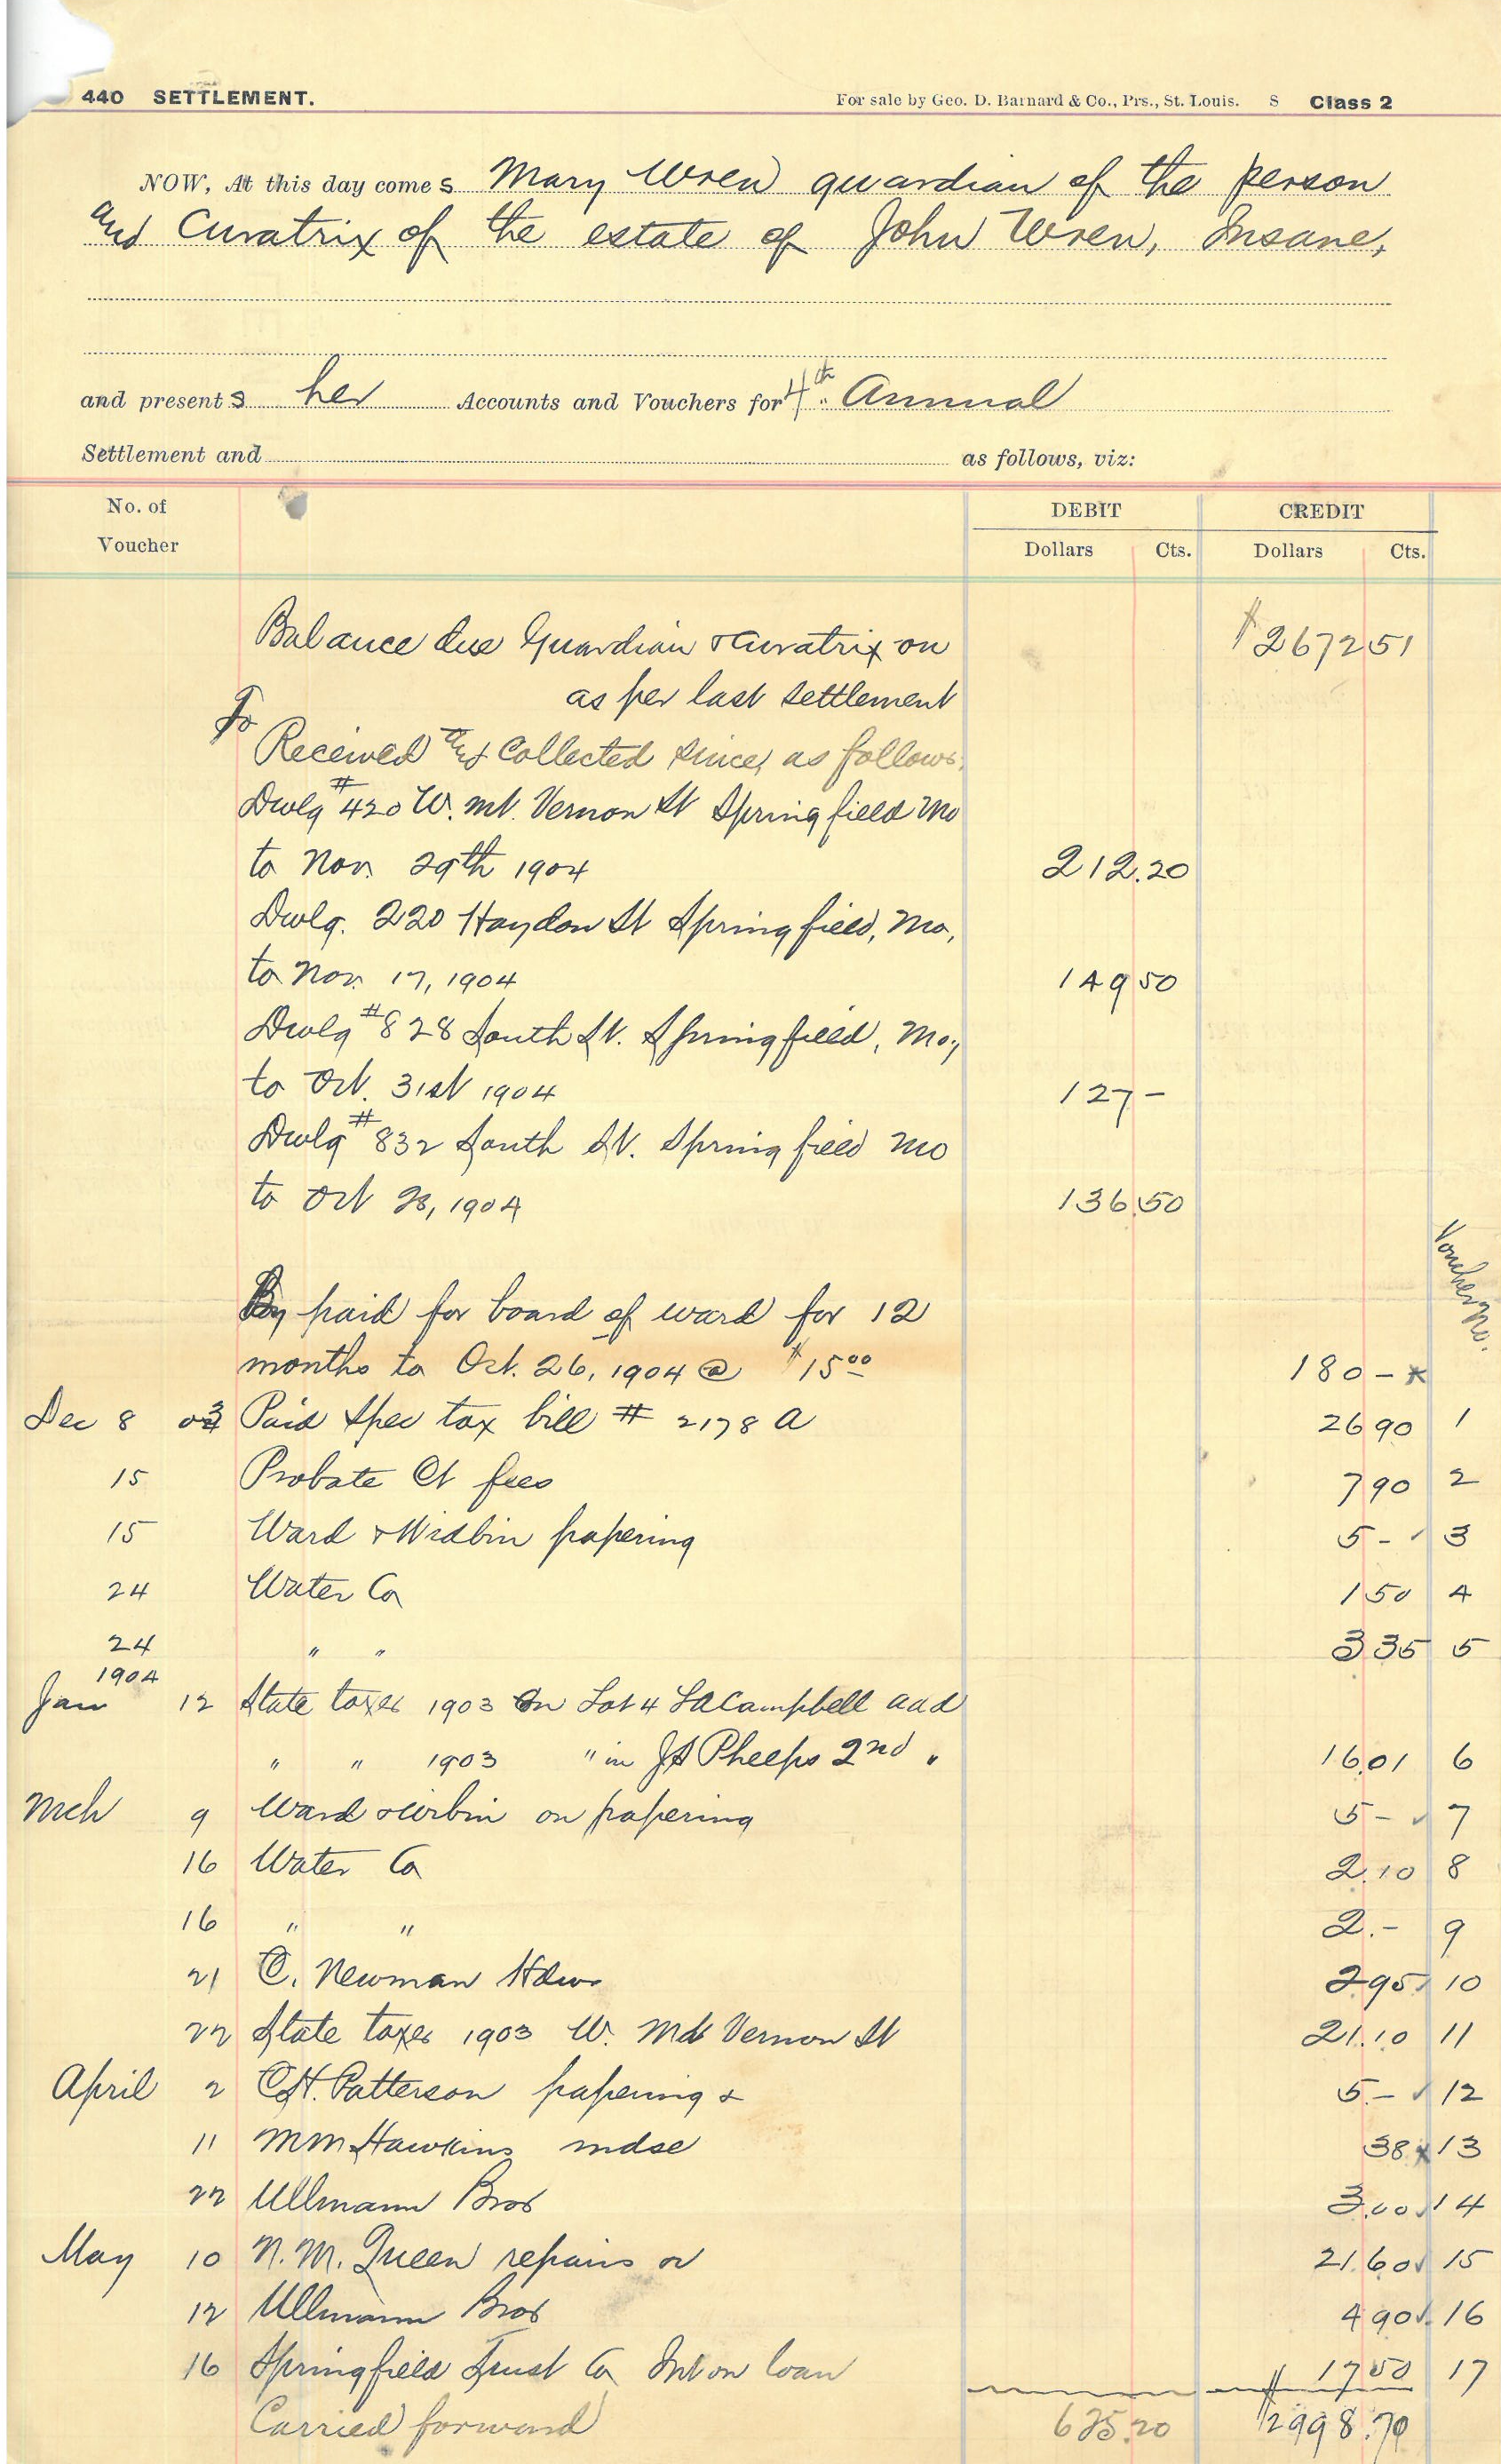 440 SETTLEMENT. For sale by Geo. D. Barnard & Co., Prs., St. Louis. S Class 2
NOW, At this day comes Mary Wren guardian of the person
and Curatrix of the estate of John Wren, Insane,
and presents her Accounts and Vouchers for 4th Annual
Settlement and as follows, viz:
No. of DEBIT CREDIT
Voucher Dollars Cts. Dollars Cts.
Balance due Guardian & Curatrix on $2672 51
as per last settlement
To
Received and Collected since, as follows,
Dwlg #420 W. Mt. Vernon St Springfield Mo
to Nov. 29th 1904 212.20
Dwlg. 220 Haydon St Springfield, Mo,
to Nov. 17, 1904 149 50
Dwlg #828 South St. Springfield, Mo,
to Oct. 31st 1904 127 -
Dwlg #832 South St. Springfield Mo
to Oct 28, 1904 136.50
Voucher No.
By paid for board of ward for 12
months to Oct. 26, 1904 @ $15 00 180 -
Dec 8 03 Paid Spec tax bill # 2178 A 26 90 1
15 Probate Ct fees 7 90 2
15 Ward & papering 5 - 3
24 Water Co 1 50 4
24 " " 3 35 5
1904
Jan 12 State taxes 1903 on Lot 4 Campbell add
" " 1903 " in JS Phelps 2nd " 16.01 6
Mch 9 Ward & on papering 5 - 7
16 Water Co 2.10 8
16 " " 2.- 9
21 C. Newman Hdw 2 95 10
22 State taxes 1903 W. Mt Vernon St 21.10 11
April 2 C.H. Patterson papering & 5.- 12
11 MM Hawkins mdse 38 13
22 Ullmann Bros 3.00 14
May 10 N.M. Queen repairs 21.60 15
12 Ullmann Bros 4 90 16
16 Springfield Trust Co Int on loan 17 50 17
Carried forward 625.20 $2998.70